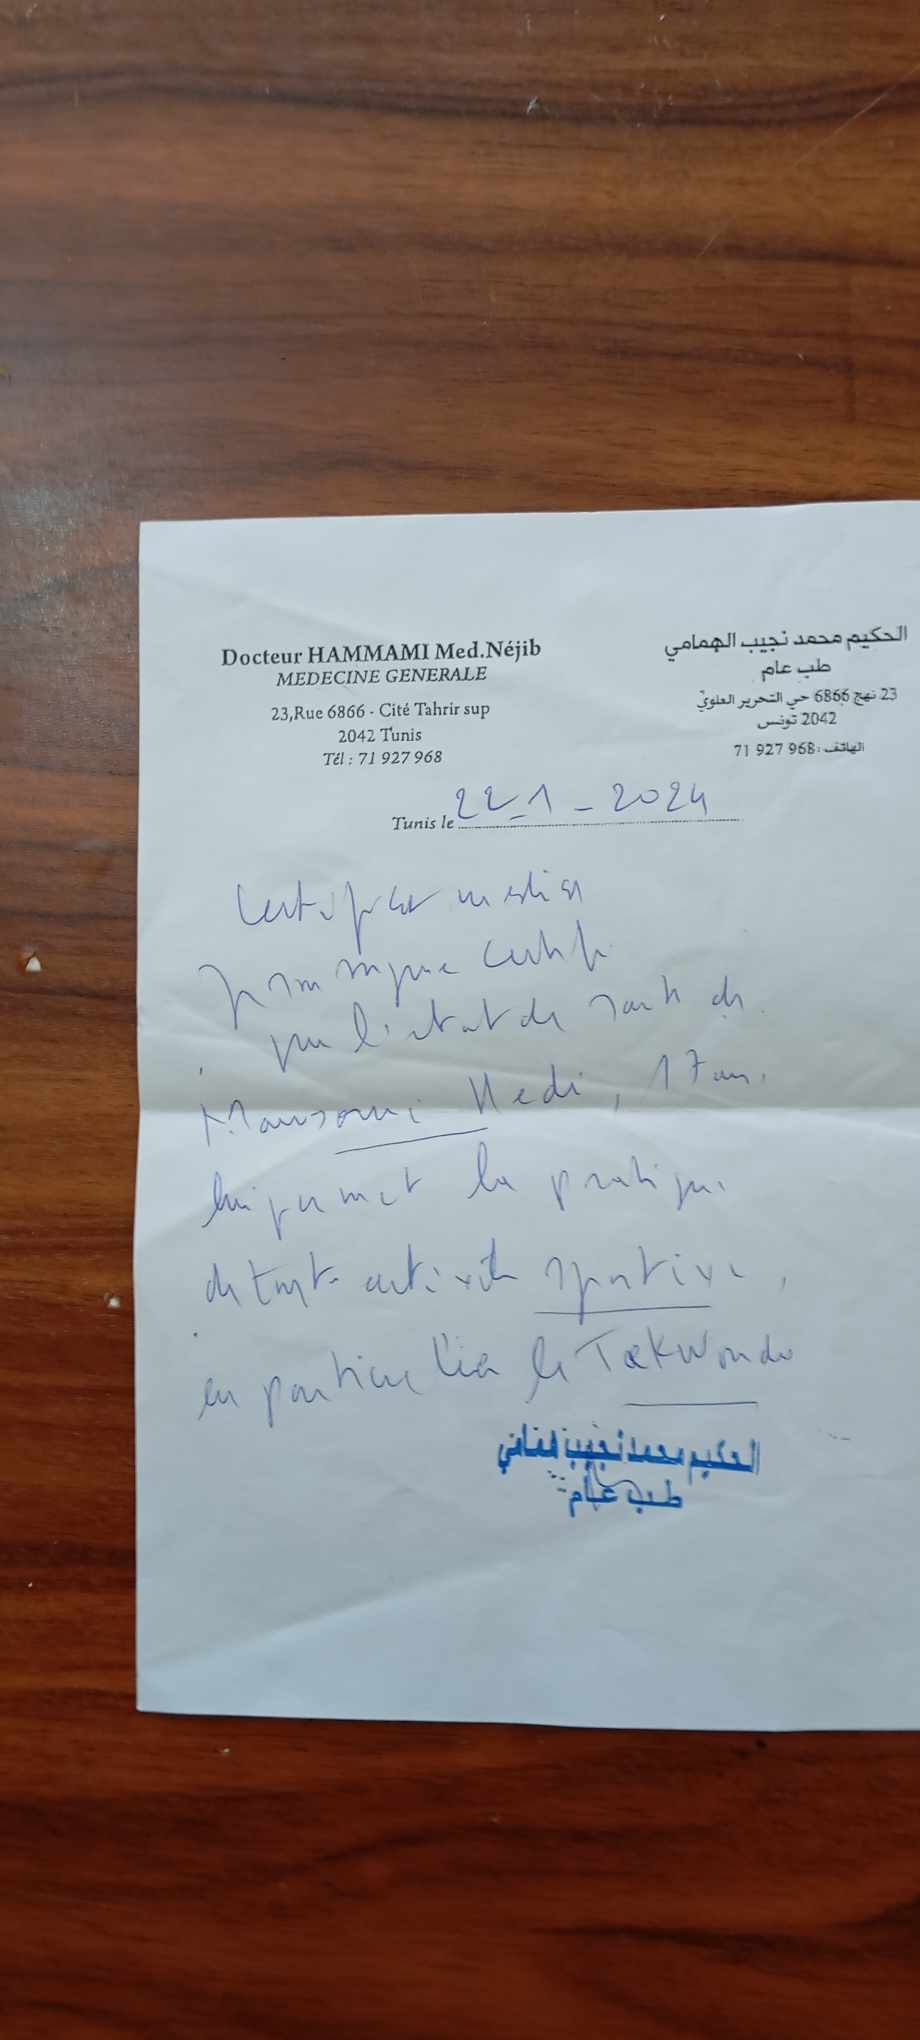 Docteur HAMMAMI Med.Néjib
MEDECINE GENERALE
23,Rue 6866 - Cité Tahrir sup
2042 Tunis
Tél : 71 927 968
الحكيم محمد نجيب الهمامي
طب عام
23 نهج 6866 حي التحرير العلوي
2042 تونس
الهاتف : 968 927 71
Tunis le 22-1-2024
Certificat medical
certifie
que l'état de santé de
Mansouri Hedi, 17 ans.
lui permet la pratique
de toute activité sportive,
en particulier le TaeKwondo
الحكيم محمد نجيب همامي
طب عام